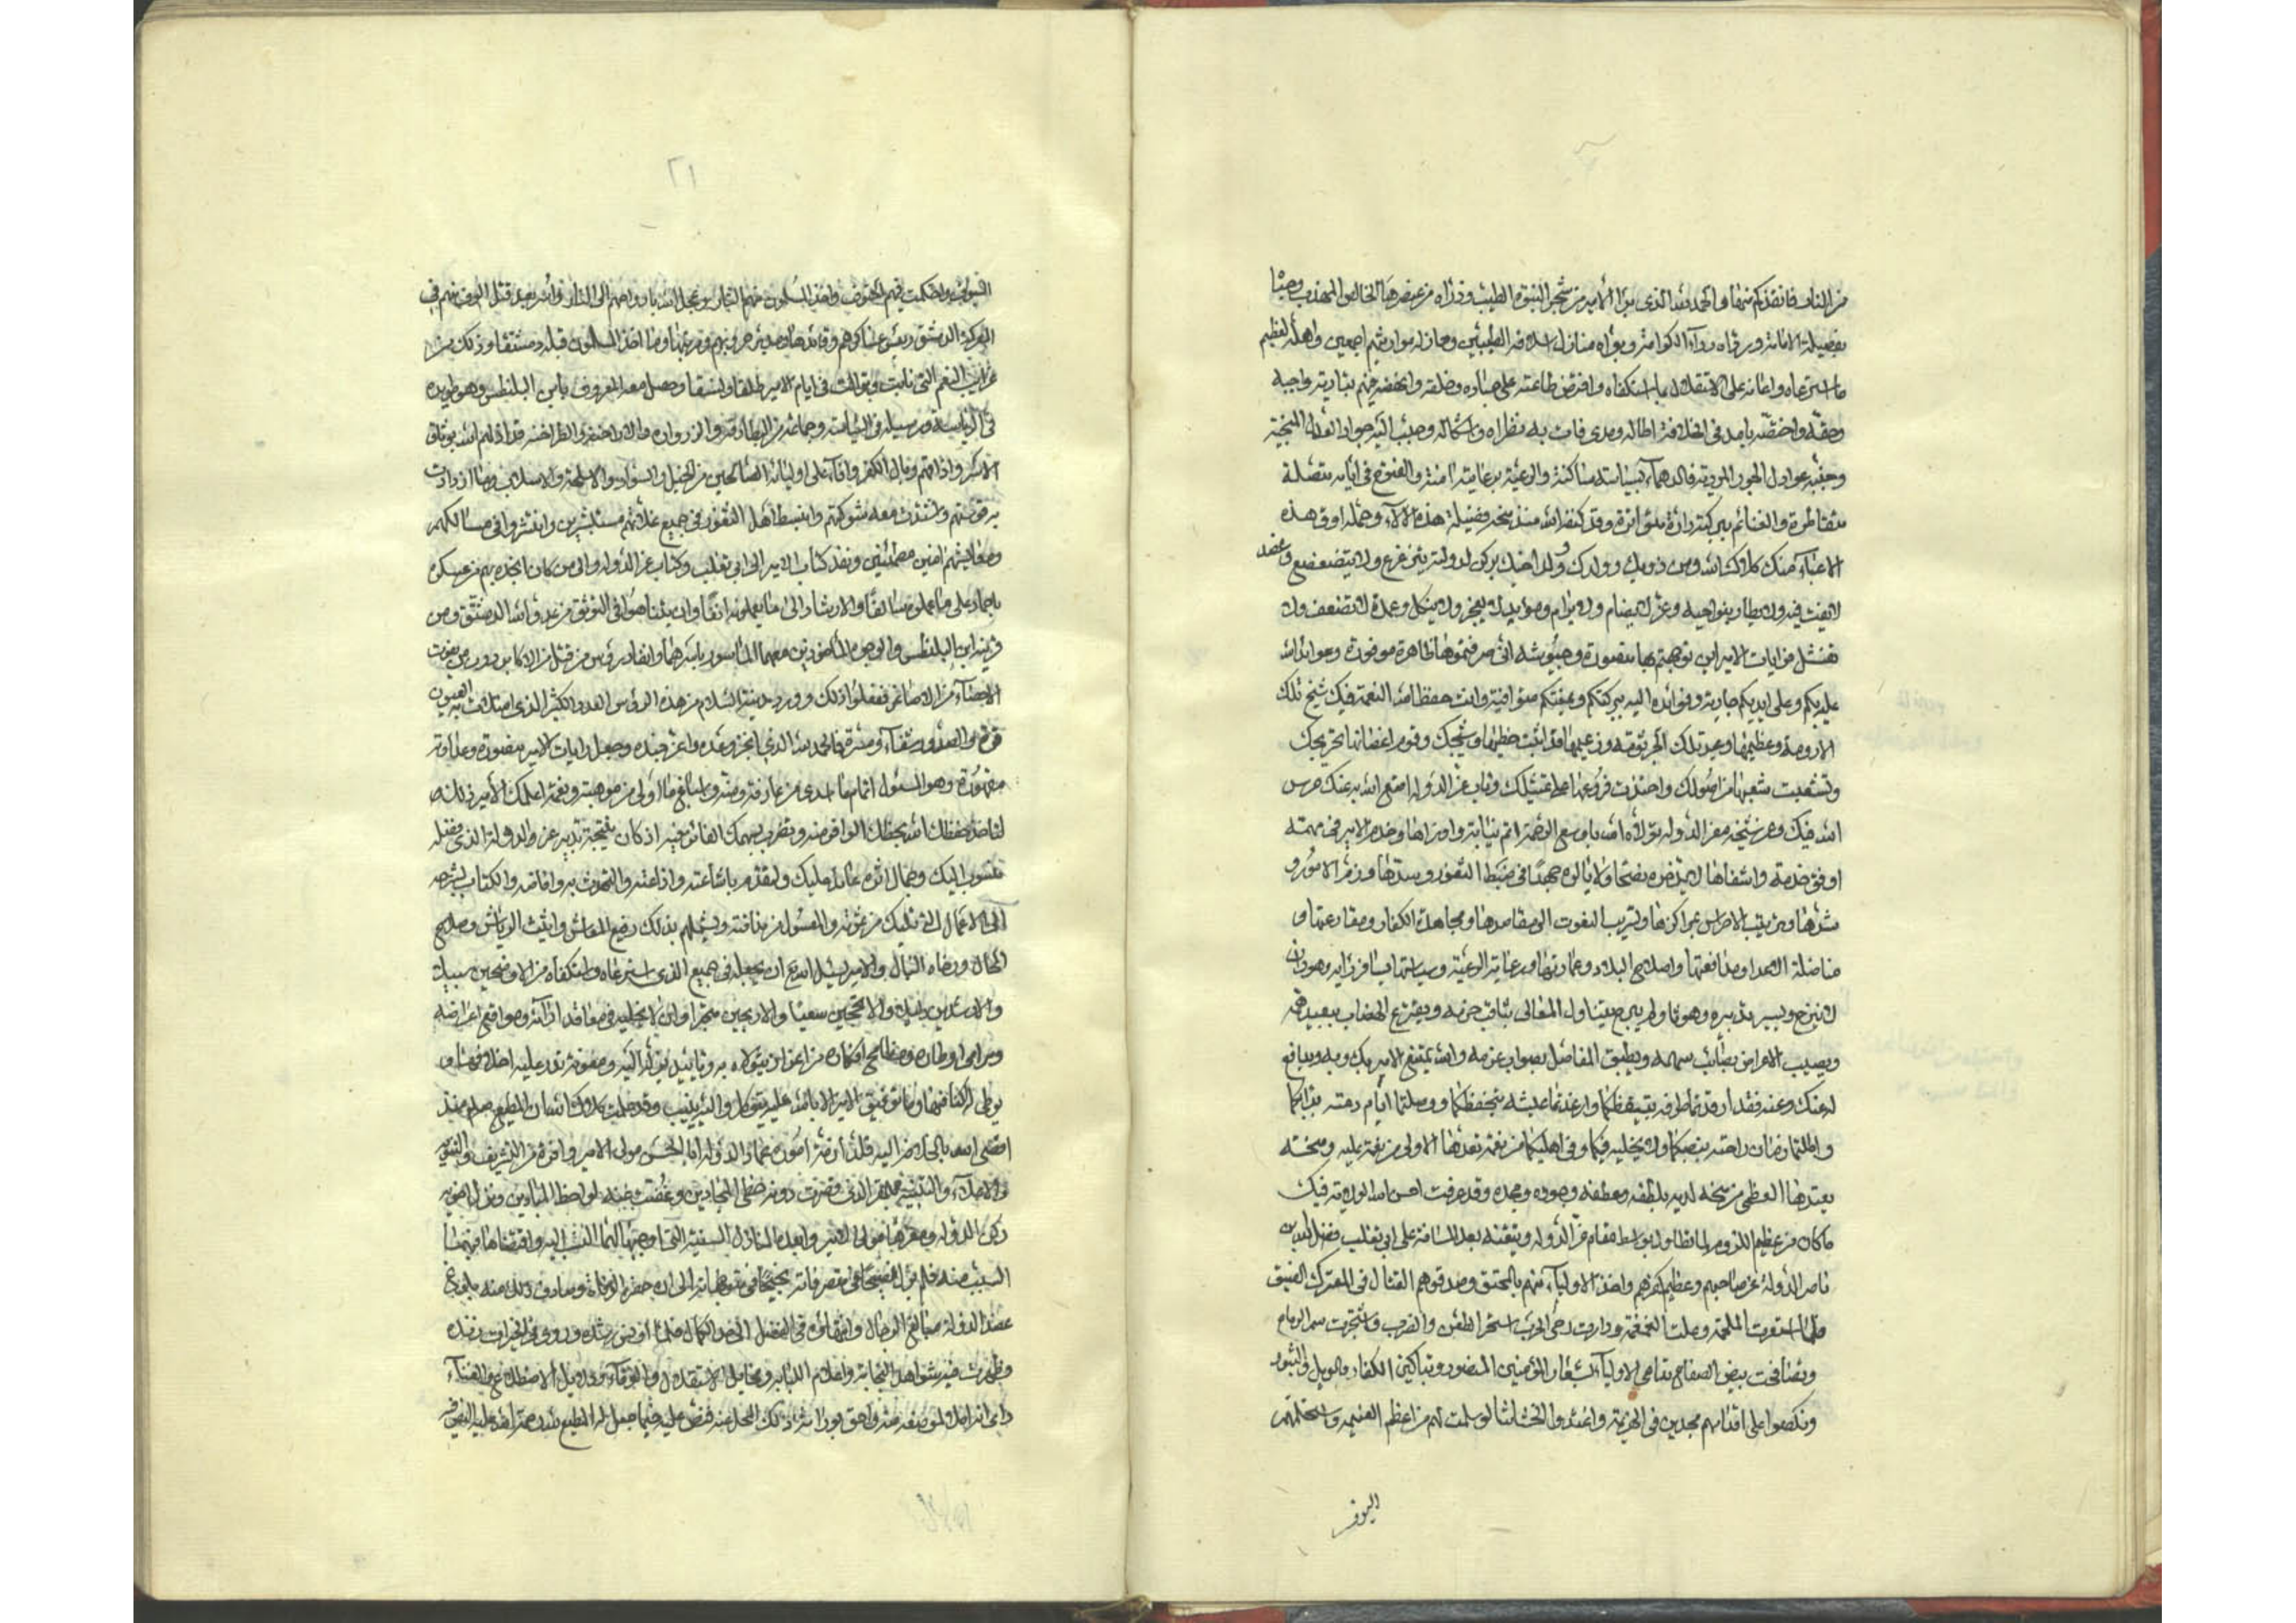 من النار فانقذكم منها والحمد لله الذي برا الامير من شجر النبوة الطيبة وذراه من عنصرها الخالص المهذب وحباه
بفضيلة الامانة ورداه رداء الكرامة وبواه منازل اسلافه الطيبين وحاز له مواريثهم اجمعين واهله لعظيم
ما استرعاه واعانه على الاستقلال بما استكفاه وافترض طاعته على عباده وخلقه
وحقه واختصه بامد في الخلافة اطاله ومدى فات به نظراه وامثاله وحبب اليه جواد العدل المنجية
وجنبه عوادل الجور المردية فالدهماء بسياسته ساكنة والرعية برعايته امنة والفتوح في ايامه متصلة
متقاطرة والغنائم ببركته دارة متواترة وقد كنفه الله منذ فضيلة هذه الالاء وحمله اوق هذه
الاعباء منك كلاك الله ومن ذويك وولدك وولد اخيك بركن لدولته عز ولا يتضعضع وعضد
لا يفت فيه ولا يطار بنواحيه وعز لا يضام ولا يرام ومؤيد لا يعجز ولا ينكل وعدة لا تضعف ولا
تفشل فرايات الامير اين توجهتم بها منصورة وجيوشه انى صرفتموها ظاهرة موفورة وعوائد الله
عليكم وعلى ايديكم جارية وفوائده اليه ببركتكم متوافية وانت حفظ الله النعمة فيك شيخ تلك
الارومة وعظيمها وعميد تلك الجرثومة وزعيمها قد انبت خطيها وشيجك وقوم اغصانها تخريجك
وتشعبت شعبها من اصولك واحتذت فروعها على تمثيلك وناب عز الدولة امتع الله به عنك حرس
الله فيك وعن شيخه معز الدولة تولاه الله باوسع الرحمة اتم نيابة واوفاها وخدم الامير في مهمته
اوفق خدمة واشفاها لا يدخره نصحا ولا يالوه جهدا في ضبط الثغور وسدها وزم الامور و
شدها وترتيب الاحراس بمراكزها وتسريب البعوث الى مقاصدها ومجاهدة الكفار ومقارعتها و
مناضلة الاعداء ومدافعتها واصلاح البلاد وعمارتها ورعاية الرعية وسياستها
ويصيب الاغراض بصائب سهامه ويطبق المفاصل بصواب عزمه والله يمتع الامير بك وبه ويدافع
له عنك وعنه فقد ارقدتما طرفه بتيقظكما وارغدتما عيشه بتحفظكما ووصلتما ايام دعته بدابكما
واطلتما زمان راحته بنصبكما ولا يخليه فيكما وفي اهليكما من نعمة تعدها الاولى من نعمة عليه ومنحة
يعتدها العظمى من منحه لديه بلطفه وعطفه وجوده ومجده وقد عرفت احسن الله الولاية فيك
ما كان من عظيم الروم لما تطاول بتوسط مقام عز الدولة وتيقنه بعد المسافة على ابي تغلب فضل الله بن
ناصر الدولة عن صاحبهم وعظيم كفرهم واخذ الاولياء منهم بالمخنق وصدقوهم القتال في المعترك الضيق
فلما استعرت الملحمة وعلت الغمغمة ودارت رحى الحرب استحر الطعن والضرب واشتجرت سمر الرماح
وتصافحت بيض الصفاح تنادى الاولياء بشعار المؤمنين المنصور وتباكين الكفار بالويل والثبور
ونكصوا على اقدامهم مجدين في الهزيمة واعتدوا الحشاشات لو سلمت لهم من اعظم الغنيمة
السيوف
٢١
السيوف فاحتكمت فيهم الحتوف واخذ المسلمون منهم الثار وعجل الله بارواحهم الى النار واسر بعد قتل الوف منهم في
المعركة الدمستق رئيس عساكرهم وقائدها ومدبر حروبهم ومرتبها وما اخذ المسلمون قبله دمستقا وذلك من
غرايب النعم التي نابت وتوالت في ايام الامير طلقا ولسقا وحصل معه المعروف بابن البلنطس وهو طريده
في الرياسة ورسيله في السياسة وجماعة من البطارقة والزراورة والاراخنة والطراخنة قد اذلهم الله بوثاق
الاسر واذاقهم وبال الكفر وافاء على اوليائه الصالحين من الخيل والسواد والاسلحة والاسلاب وما ازدادت
به قوتهم واشتدت معه شوكتهم وانبسط اهل الثغور في جميع علاتهم مستبشرين وانتشروا في مسالكهم
ومعايشهم امنين مطمئنين ونفذ كتاب الامير الى ابي تغلب وكتاب عز الدولة والى من كان انجده بهم من عسكره
باحماد على ما عملوه سالفا والارشاد الى ما يعملونه انفا وان يتناصوا في التوثق من عدو الله الدمستق ومن
قرنه ابن البلنطس والوجوه الماخوذين معهما المأسورين باسرهما وانفاد رؤس من قتل من الاكابر دون من
الاحياء من الاصاغر ففعلوا ذلك وورد مدينة السلام من هذه الرؤس العدد الكثير الذي امتلات به العيون
قرة والصدور شفاء ومسرة فالحمد لله الذي انجز وعده واعز جنده وجعل رايات الامير منصورة وعداوته
مقهورة وهو المسئول اتمام ما اسدى من عارفته ومنه واسباغ ما اولى من موهبته ونعمته اعلمك الامير ذلك
لتاخذ حفظك الله بحظك الوافر منه وتضرب بسهمك الفائز فيه اذ كان نتيجة تدبير عز الدولة الذي فضله
منسوب اليك وجمال اثره عائد عليك ولتقدم باشاعته واذاعته والتحدث به وافاضته والكتاب بشرحه
الى الاعمال التي تليك من عقوته والمسؤل من نيافته ويشملهم بذلك رفيع المعاش واثيث الرياش وصالح
الحال ورخاء البال والامير يسئل الله ان يجعله في جميع الذي استرعاه واستكفاه من الاوضحين سبيلا
والارشدين دليلا والانجحين سعيا والاربحين متجرا وان لا يخليه في معاقد ارائه ومواقع اغراضه
ومرامي اوطاره ومطامح افكاره من عون يتولاه به وتاييد يؤد اليه ومعونة تدر عليه اخلافها و
يوطى له اكنافها وما توفيق الامير الا بالله عليه يتوكل واليه ينيب وقد علمت كلاك الله ان المطيع لله منذ
افضى الله بالخلافة اليه قلد ازمة اموره عماد الدولة ابا الحسن مولى الامير وافرده من التشريف والتنويه
والاجلاء والتنبيه الذي قصرت دونه خطى المجارين وغضت عنه لواحظ المبارين ونزل اخويه
ركن الدولة ومعزها موالي الامير وابعده المنازل السنية التي اوجبتها لهما النسب اليه واقتضاها قربهما
السبب منه فلم يزل نصيحا في تصرفاته نجيحا في متوجهاته الى ان حضره الوفاة وصادف ذلك منه بلوغ
عضد الدولة مبالغ الرجال وانتهائه في الفضل الى حد الكمال فلما اونس رشده وروى في الخيرات زنده
وظهرت فيه شواهد النجابة واعلام اللبابة ومخايل الاستقلال والوفاء ودلايل الاضطلاع والغناء
راى انزاله لموضعه منه واحق بوراثة ذلك المحل عنه فنص عليه فيما جعل له المطيع لله رحمة الله عليه النص في